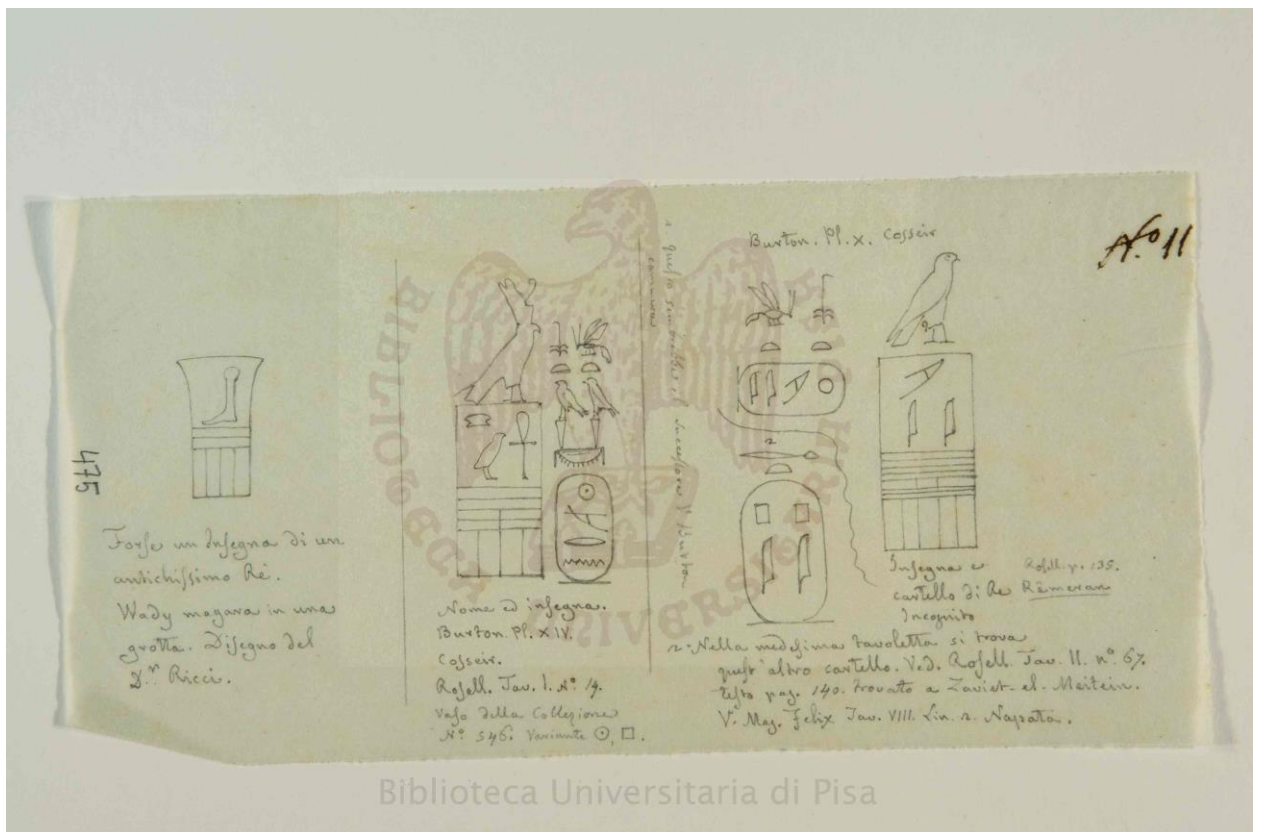 Nº 11
475
Forse un Insegna di un
antichissimo Rè.
Wady magara in una
grotta. Disegno del
D.r Ricci.
Nome ed insegna.
Burton Pl. XIV.
Cosseir.
Rosell. Tav. I. Nº 19.
Vaso della Collezione
Nº 546. Variante ⊙, □.
questo sembrebbe il Successore V. Burton
Burton. Pl. X. Cosseir
2
Insegna e Rosell. p. 135.
cartello di Re Rêmeran
Incognito
2. Nella medesima tavoletta si trova
quest'altro cartello. Ved. Rosell. Tav. II. nº 67.
testo pag. 140. trovato a Zaviet-el-Meitein.
V. Maj. Felix Tav. VIII. Lin. 2. Napata.
BIBLIOTECA UNIVERSITARIA DI PISA
Biblioteca Universitaria di Pisa